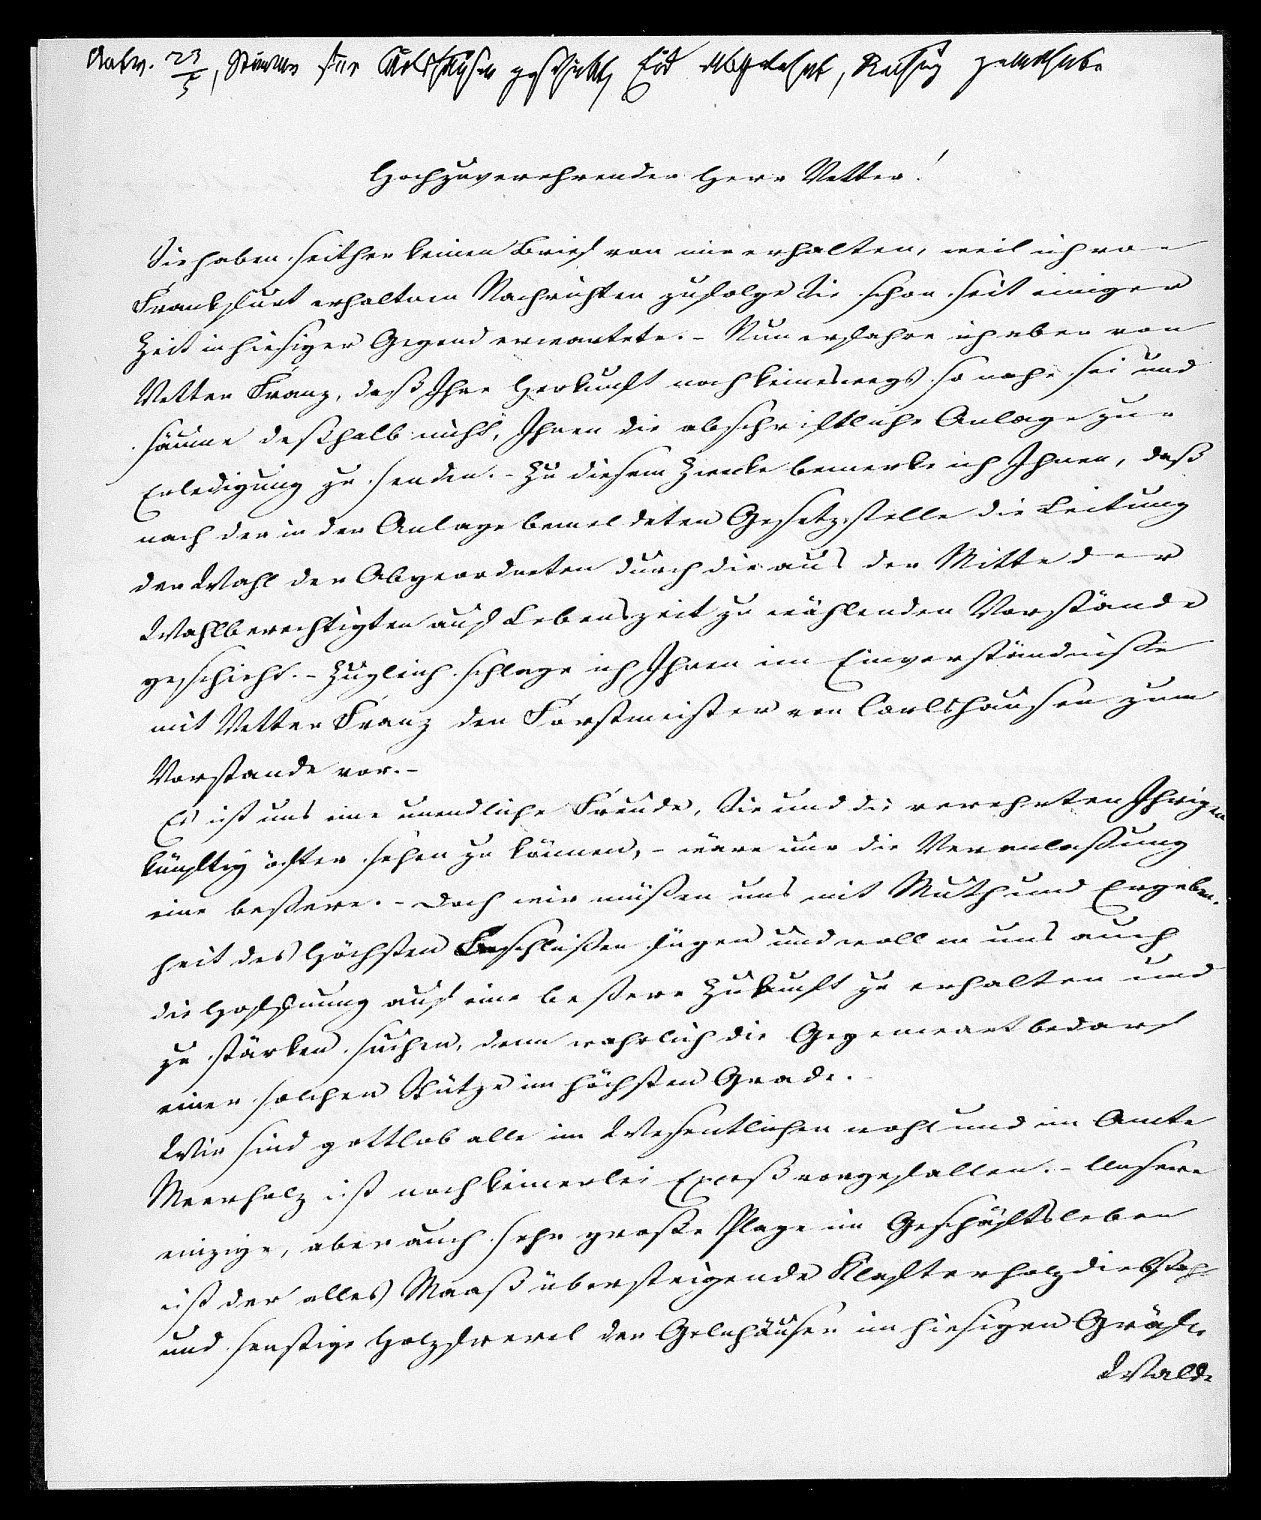 Antw. 23/5, Stimme für Carlshausen geschickt, Eid abgelehnt,
Hochzuverehrender Herr Vetter!
Sie haben seither keinen Brief von mir erhalten, weil ich von
Frankfurt erhaltnen Nachrichten zufolge Sie schon seit einiger
Zeit in hiesiger Gegend erwartete. - Nun erfahre ich aber von
Vetter Franz, daß Ihre Herkunft noch keineswegs so nahe sei und
säume deßhalb nicht, Ihnen die abschriftliche Anlage zur
Erledigung zu senden. - Zu diesem Zwecke bemerke ich Ihnen, daß
nach der in der Anlage bemeldeten Gesetzstelle die Leitung
der Wahl der Abgeordneten durch die aus der Mitte der
Wahlberechtigten auf Lebenszeit zu wählenden Vorstände
geschieht. - Zugleich schlage ich Ihnen im Einverständniße
mit Vetter Franz den Forstmeister von Carlshausen zum
Vorstande vor. -
Es ist uns eine unendliche Freude, Sie und die verehrten Ihrigen
künftig öfter sehen zu können, - wäre nur die Veranlaßung
eine beßere. - Doch wir müßen uns mit Muth und Ergeben-
heit des Höchsten Beschlüßen fügen und wollen uns auch
die Hoffnung auf eine beßere Zukunft zu erhalten und
zu stärken suchen, denn wahrlich die Gegenwart bedarf
einer solchen Stütze im höchsten Grade.
Wir sind gottlob alle im Wesentlichen wohl und im Amte
Meerholz ist noch keinerlei Exceß vorgefallen. - Unsere
einzige, aber auch sehr große Plage im Geschäftsleben
ist der alles Maaß übersteigende Klafterholzdiebstahl
und sonstige Holzfrevel der Gelnhäuser im hiesigen Gräfl.
Walde